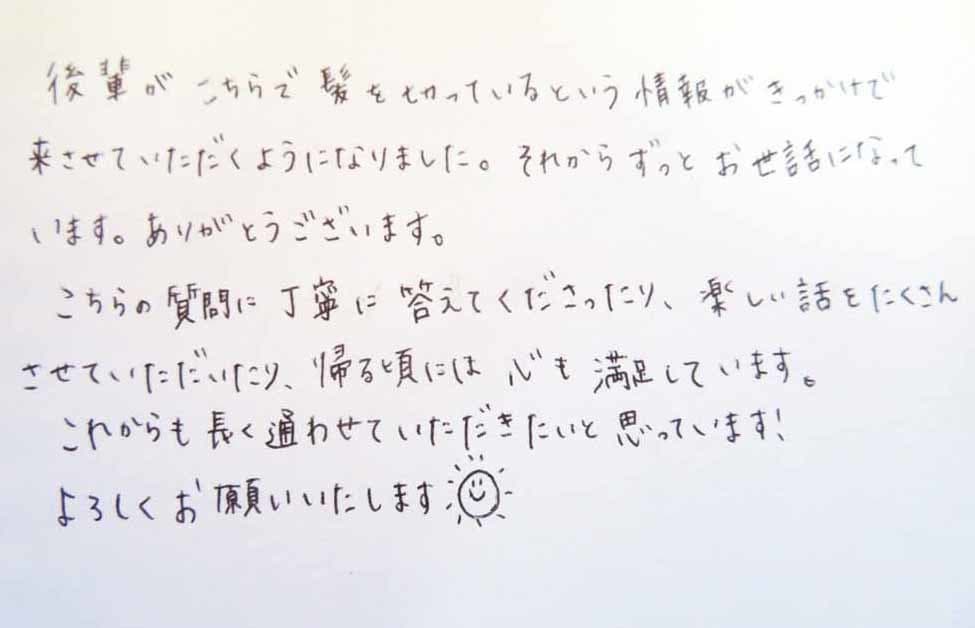 後輩がこちらで髪を切っているという情報がきっかけで
来させていただくようになりました。それからずっとお世話になって
います。ありがとうございます。
こちらの質問に丁寧に答えてくださったり、楽しい話をたくさん
させていただいたり、帰る頃には心も満足しています。
これからも長く通わせていただきたいと思っています!
よろしくお願いいたします